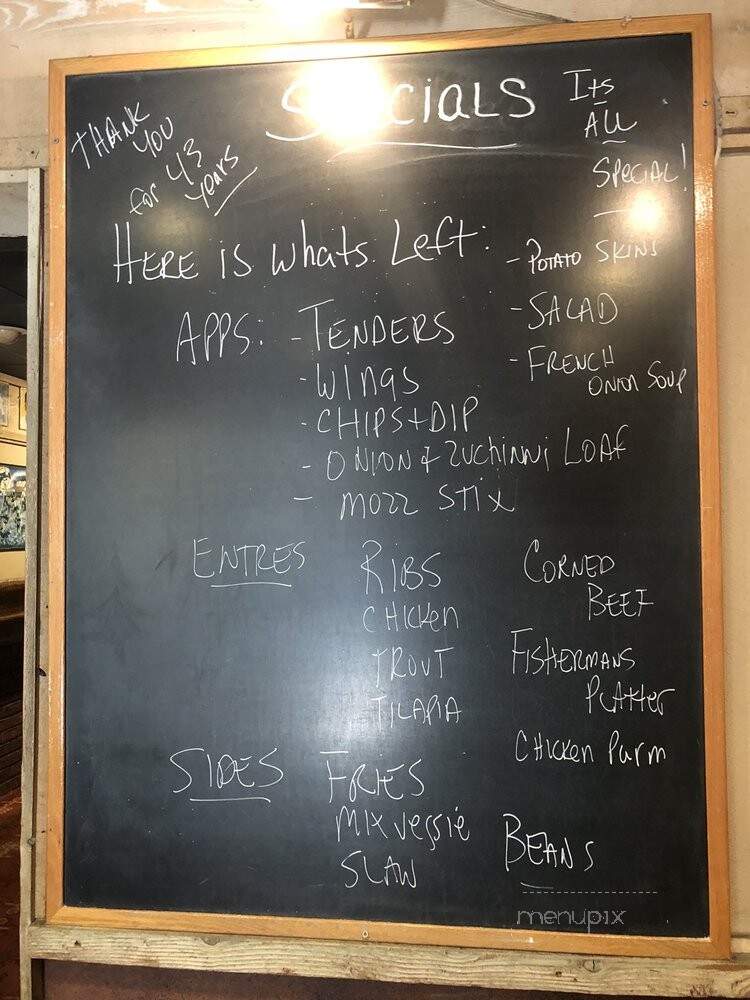 SPECIALS
Its
ALL
SPECIAL!
THANK
YOU
for 43
years
HERE is whats Left:
APPS: - TENDERS
- Wings
- CHIPS + DIP
- ONION & Zuchinni LOAF
- mozz STIX
- POTATO SKINS
- SALAD
- FRENCH
ONION SOUP
ENTRES
RIBS
CHICKEN
TROUT
TILAPIA
CORNED
BEEF
FISHERMANS
PLATTER
CHICKEN Parm
SIDES
FRIES
MIX veggie
SLAW
BEANS
menupix